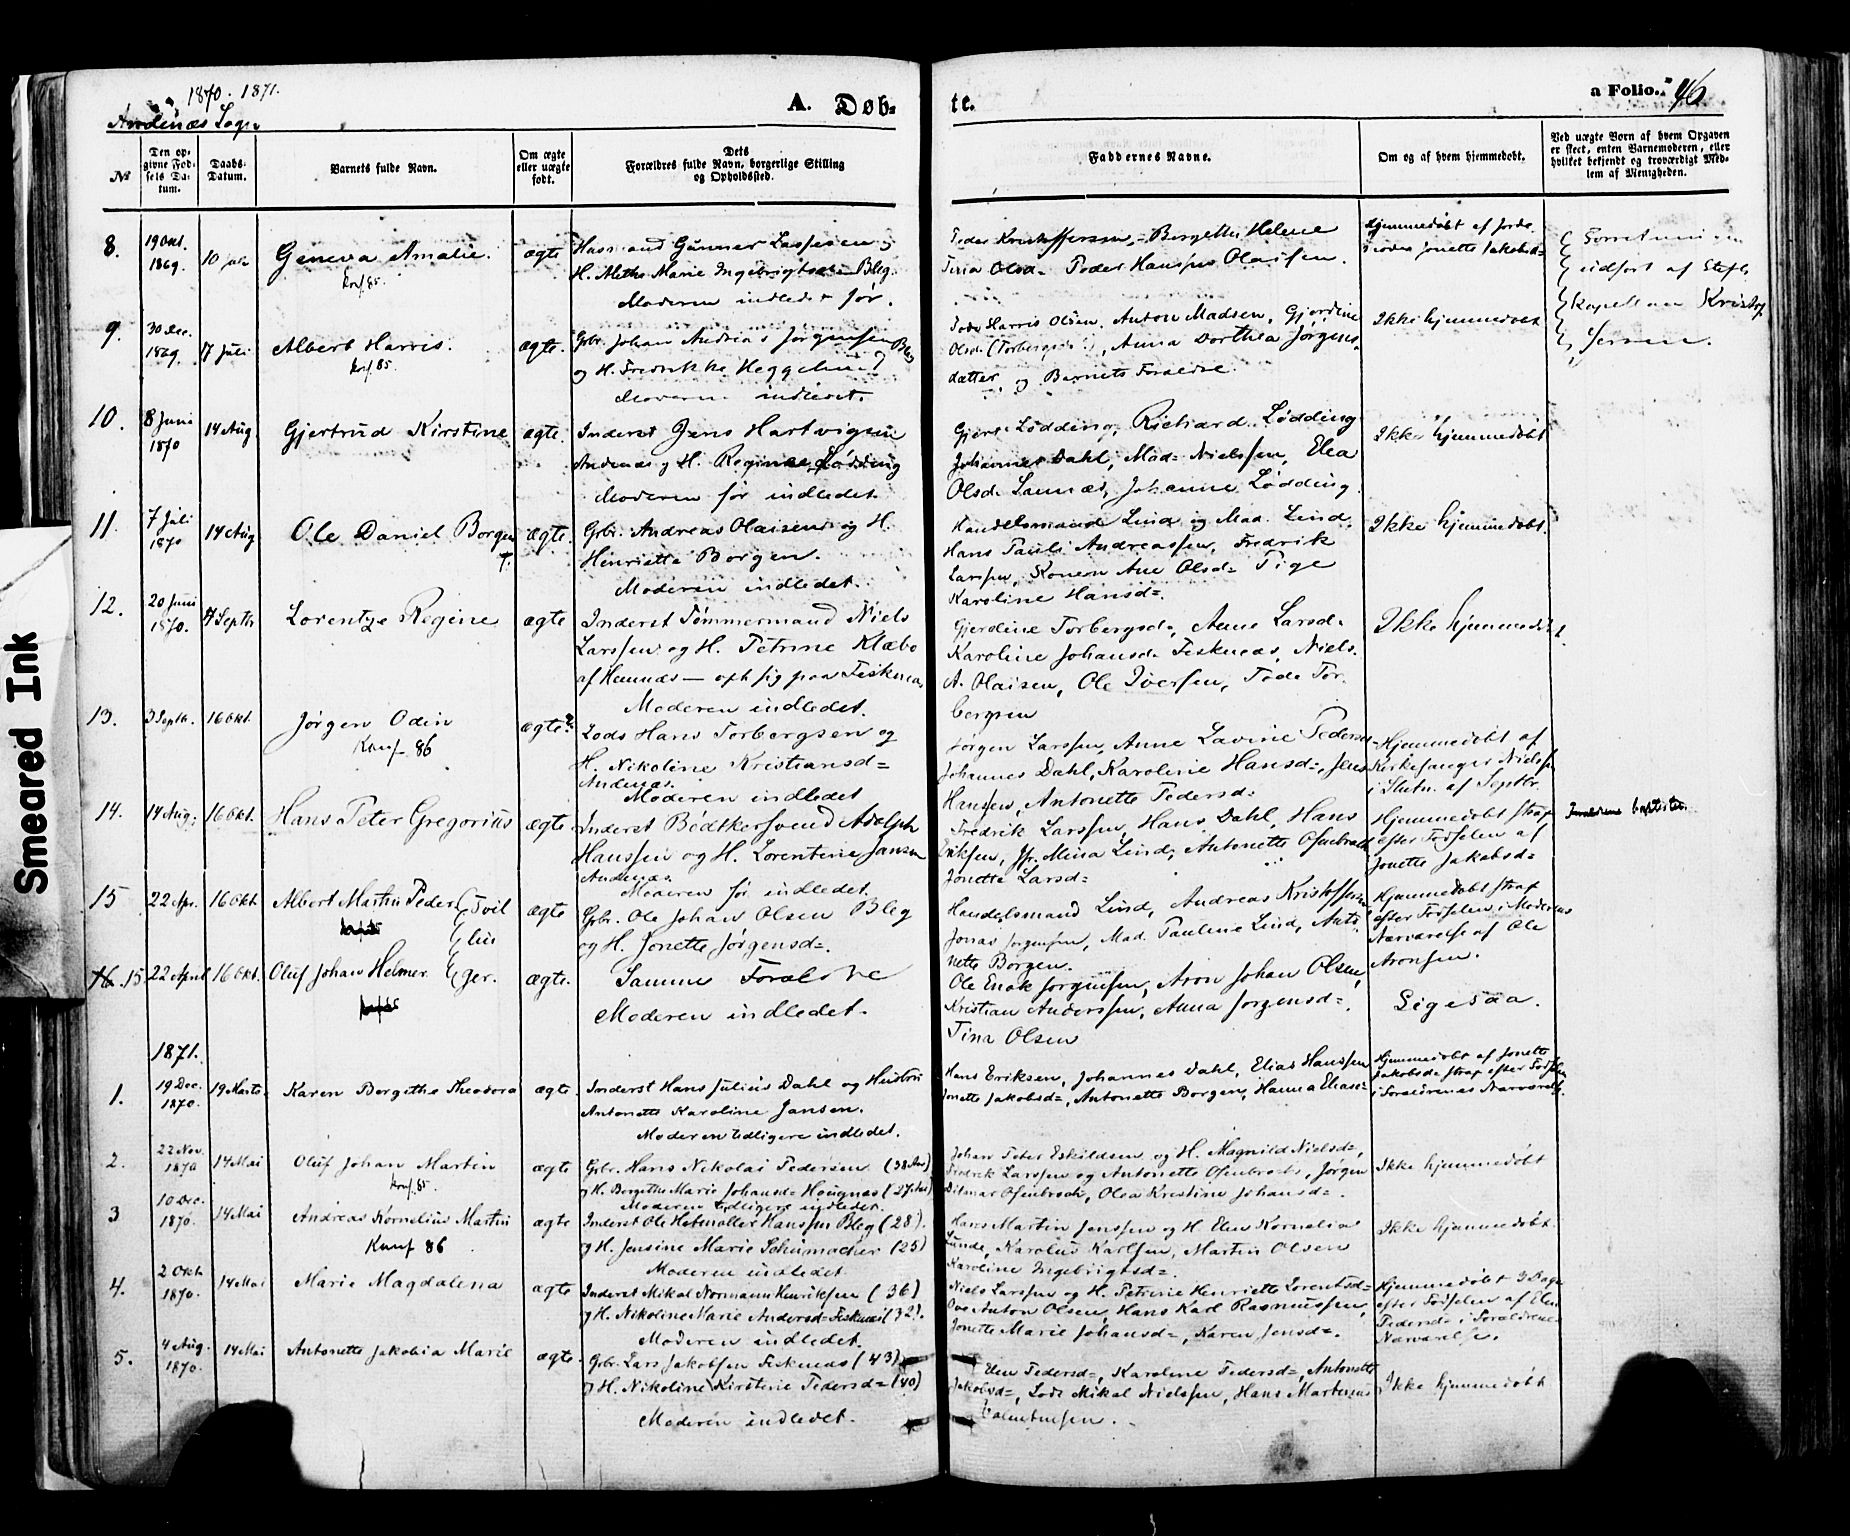 1870. 1871.
Andenæs Sogn
A. Døb-
te.
a Folio. 46
No
Den op-
givne Fød-
sels Da-
tum.
Daabs-
Datum.
Barnets fulde Navn.
Om ægte
eller uægte
født.
Dets
Forældres fulde Navn, borgerlige Stilling
og Opholdssted.
Faddernes Navne.
Om og af hvem hjemmedøbt.
Ved uægte Børn af hvem Opgaven
er skeet, enten Barnemoderen, eller
hvilket bekjendt og troværdigt Med-
lem af Menigheden.
8.
19 Okt.
1869.
10 Juli
Geneva Amalie.
Konf. 85.
ægte
Husmand Gunner Lassesen og
H. Alethe Marie Ingebrigtsd= Bleg.
Moderen indledet før.
Peder Kristoffersen, Bergethe Helene
Olsd= Peder Hansen Olaisen.
Hjemmedøbt af Jorde-
moder Jonette Jakobsd=
Forretningen
udført af Stifts
kapellan Kristof
fersen.
9.
30 Dec.
1869.
7 Juli
Albert Harris.
Konf. 85.
ægte.
Gbr. Johan Andreas Jørgensen Bleg
og H. Fredrikke Heggelund
Moderen indledet.
Peder Harris Olsen, Anton Madsen, Gjerdine
Olsd. (Torbergsd.), Anna Dorthea Jørgens-
datter, og Barnets Forældre.
Ikke hjemmedøbt
10.
8 Juni
1870
14 Aug.
Gjertrud Kirstine
ægte.
Inderst Jens Hartvigsen
Andenæs og H. Regine Lødding
Moderen før indledet.
Lødding, Richard Lødding
Johannes Dahl, Mad= Nielssen, Elea
Olsd. Sannæs, Johanne Lødding.
Ikke hjemmedøbt
11.
7 Juli
1870
14 Aug
Ole Daniel Borgen
ægte.
Gbr. Andreas Olaisen og H.
Henriette Borgen.
Moderen indledet.
Handelsmand Lind og Mad. Lind.
Hans Pauli Andreassen, Fredrik
Larssen, Konen Ane Olsd= Pige
Karoline Hansd=.
Ikke hjemmedøbt.
12.
20 Juni
1870.
7 Septb
Lorentze Regine
ægte
Inderst Tømmermand Niels
Larssen og H. Petrine Klæbo
af Hemnæs — oph. sig paa Fiskenæs
Moderen indledet.
Gjerdine Torbergsd=, Anne Larsd=
Karoline Johansd= Fiskenæs, Niels
A. Olaisen, Ole Iversen, Peder Tor-
bergsen
Ikke hjemmedøbt.
13.
3 Septb.
16 Okt.
Jørgen Odin
Konf. 86
ægte
Lods Hans Torbergsen og
H. Nikoline Kristiansd=
Andenæs.
Moderen indledet
Jørgen Larssen, Anne Lavine Pedersen
Johannes Dahl, Karoline Hansd=, Jens
Hansen, Antonette Pedersd=
Hjemmedøbt af
Kirkesanger Nielsen
i Slutn. af Septbr.
14.
14 Aug.
16 Okt.
Hans Peter Gregorius
ægte
Inderst Bødtkersvend Adolph
Hanssen og H. Lorentine Jansen
Andenæs.
Moderen før indledet.
Fredrik Larssen, Hans Dahl, Hans
Eriksen, Jfr. Mina Lind, Antonette Ofenbroch
Jonette Larsd=
Hjemmedøbt strax
efter Fødselen af
Jonette Jakobsd=
Forældrene baptister.
15
22 Apr.
16 Okt
Albert Martin Peder
ægte
Gbr. Ole Johan Olsen Bleg
og H. Jonette Jørgensd=.
Handelsmand Lind, Andreas Kristoffersen
Jonas Jørgensen, Mad. Pauline Lind, Anto
nette Borgen.
Hjemmedøbt strax
efter Fødselen i Moderens
Nærværelse af Ole
Aronsen.
Tvil
lin
ger.
16. 15
22 April
16 Okt.
Oluf Johan Helmer
ægte.
Samme Forældre
Moderen indledet.
Ole Enok Jørgensen, Aron Johan Olsen,
Kristian Anderssen, Anna Jørgensd=.
Tina Olsen
Ligesaa.
1871.
1.
19 Dec.
1870.
19 Marts
Karen Bergithe Theodora
ægte
Inderst Hans Julius Dahl og Hustru
Antonette Karoline Jansen.
Moderen tidligere indledet.
Hans Eriksen, Johannes Dahl, Elias Hanssen
Jonette Jakobsd=, Antonette Borgen, Hanna Eliasd=
Hjemmedøbt af Jonette
Jakobsd= strax efter Fødselen
i Forældrenes Nærværelse.
2.
22 Nov.
1870
14 Mai
Oluf Johan Martin
Konf. 85.
ægte
Gbr. Hans Nikolai Pedersen (38 Aar)
og H. Bergithe Marie Johansd= Haugnæs (27 Aar)
Moderen tidligere indledet.
Johan Peter Eskildsen og H. Magnild Nielsd=,
Fredrik Larssen og Antonette Ofenbroch, Jørgen
Ditmar Ofenbroch, Olea Kristine Johansd=.
Ikke hjemmedøbt
3
10 Dec.
1870.
14 Mai
Andreas Kornelius Martin
Konf 86
ægte
Inderst Ole Hanssen Bleg (28).
og H. Jensine Marie Schumacher (25)
Moderen indledet
Hans Martin Jenssen og H. Elen Kornelia
Lunde, Karolus Karlsen, Martin Olsen
Karoline Ingebrigtsd=.
Ikke hjemmedøbt.
4.
2 Okt.
1870.
14 Mai
Marie Magdalena
ægte
Inderst Mikal Normann Henriksen (36)
og H. Nikoline Marie Andersd= Fiskenæs (32).
Moderen indledet.
Niels Larssen og H. Petrine Henriette Lorentsd=
Ove Anton Olsen, Hans Karl Rasmussen,
Jonette Marie Johansd=, Karen Jensd=.
Hjemmedøbt 3 Dage
efter Fødselen af Elen
Pedersd= i Forældrenes
Nærværelse.
5.
4 Aug.
1870.
14 Mai
Antonette Jakobia Marie
ægte.
Gbr. Lars Jakobsen Fiskenæs (43)
og H. Nikoline Kirstine Pedersd= (40)
Moderen indledet.
Elen Pedersd=, Karoline Pedersd=, Antonette
Jakobsd=, Lods Mikal Nielssen, Hans Martinus
Valentinsen.
Ikke hjemmedøbt
Smeared Ink